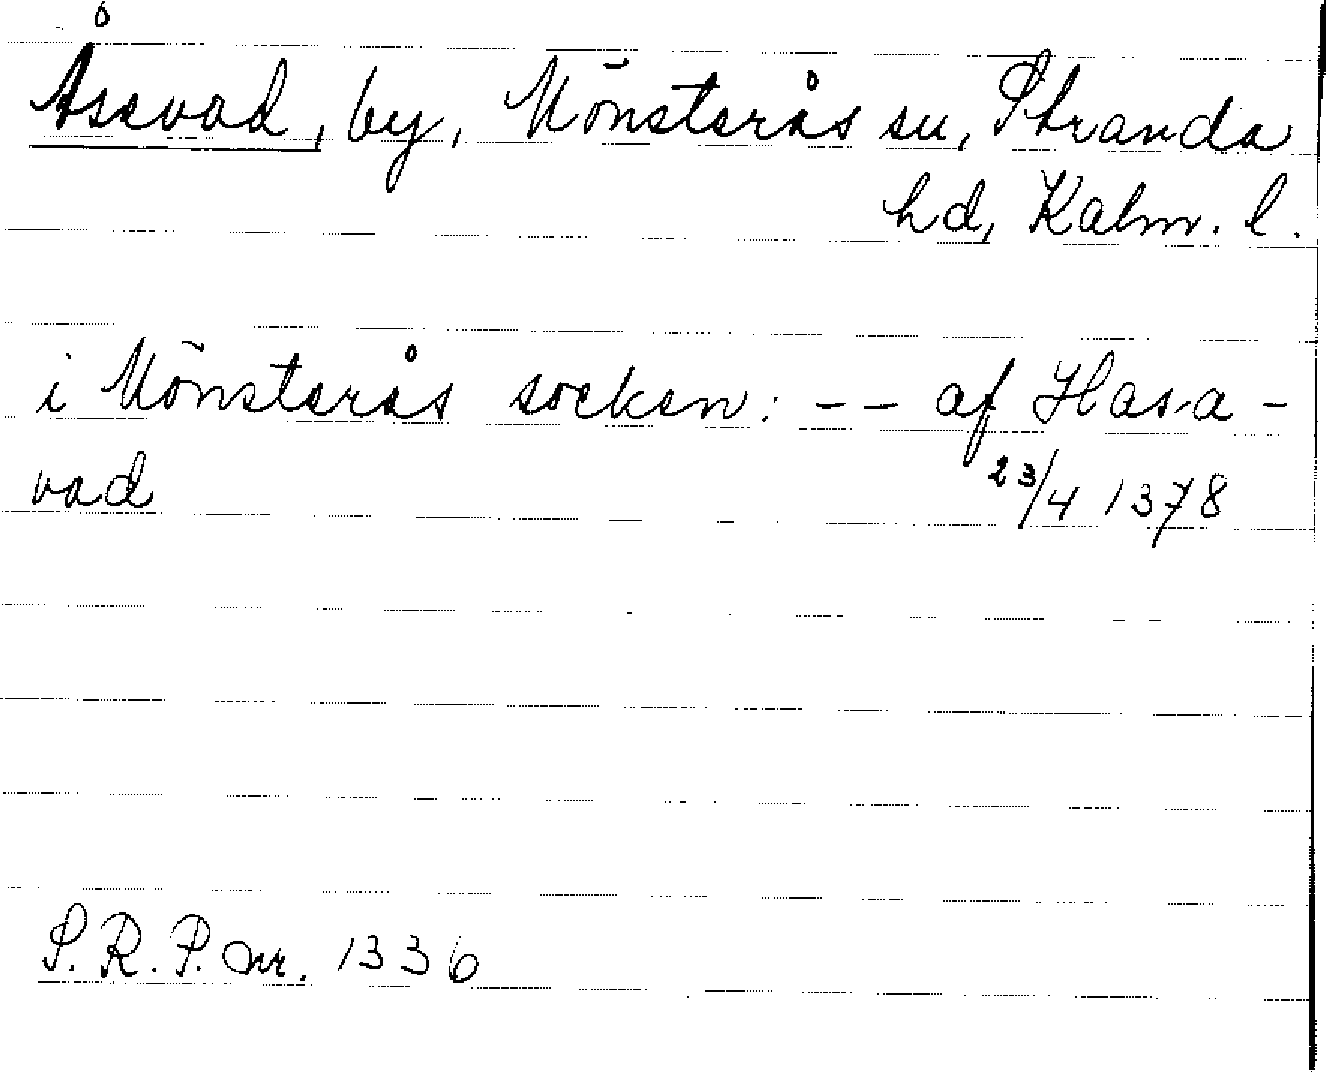 Åsevad, by, Mönsterås sn, Stranda
hd, Kalm. l.
i Mönsterås socken: -- af Hasa-
vad 23/4 1378
S.R.P. nr. 1336